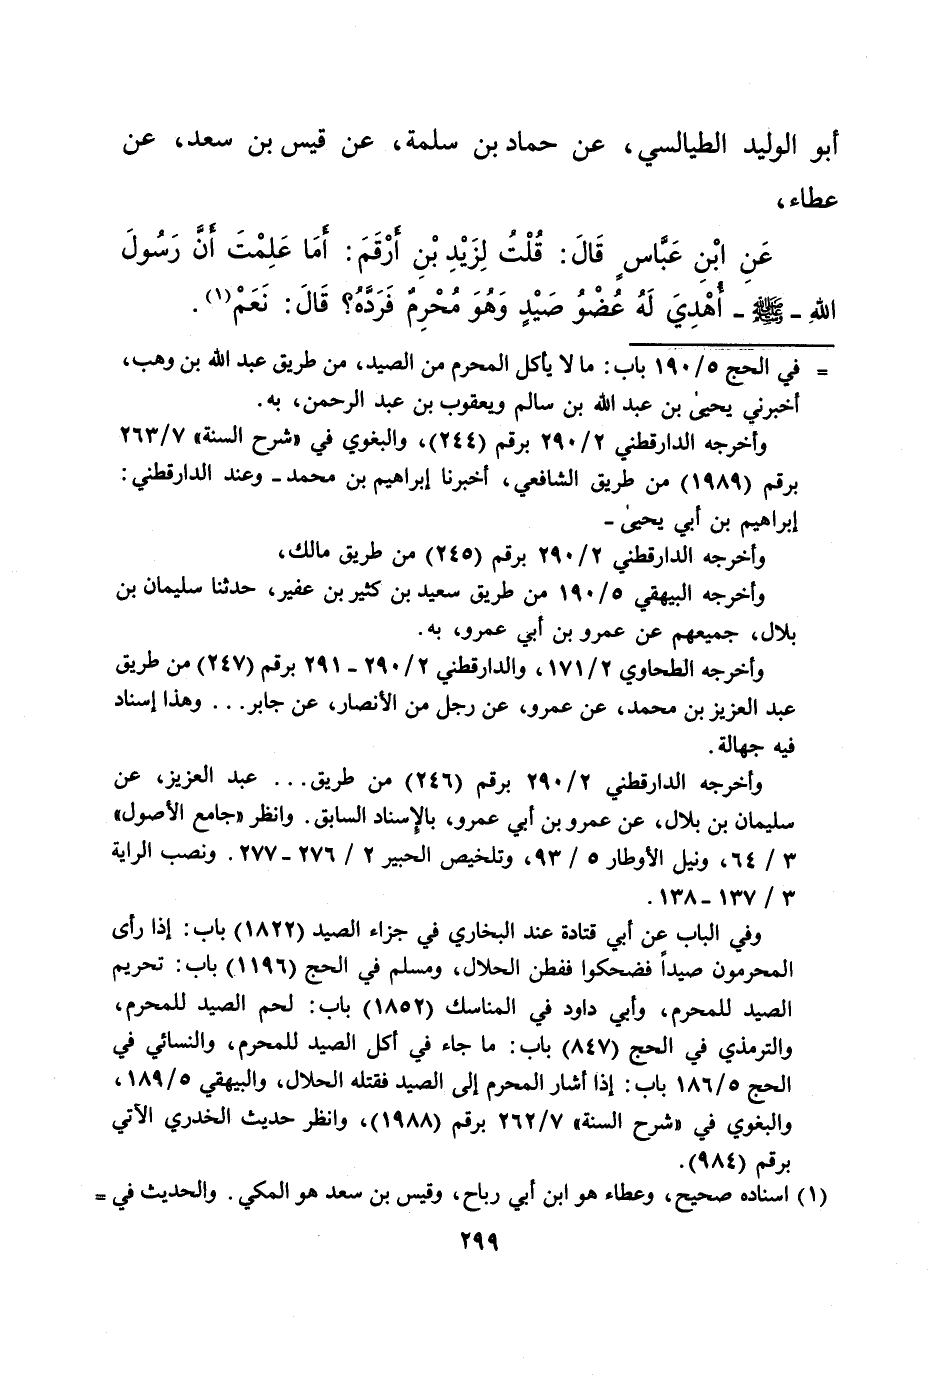 أبو الوليد الطيالسي، عن حماد بن سلمة، عن قيس بن سعد، عن
عطاء،
عَنِ ابْنِ عَبَّاسٍ قَالَ: قُلْتُ لِزَيْدِ بْنِ أَرْقَمَ: أَمَا عَلِمْتَ أَنَّ رَسُولَ
اللهِ ـ ﷺ ـ أُهْدِيَ لَهُ عُضْوُ صَيْدٍ وَهُوَ مُحْرِمٌ فَرَدَّهُ؟ قَالَ: نَعَمْ(١).
= في الحج ١٩٠/٥ باب: ما لا يأكل المحرم من الصيد، من طريق عبد الله بن وهب،
أخبرني يحيىٰ بن عبد الله بن سالم ويعقوب بن عبد الرحمن، به.
وأخرجه الدارقطني ٢٩٠/٢ برقم (٢٤٤)، والبغوي في «شرح السنة» ٢٦٣/٧
برقم (١٩٨٩) من طريق الشافعي، أخبرنا إبراهيم بن محمد ـ وعند الدارقطني:
إبراهيم بن أبي يحيىٰ ـ
وأخرجه الدارقطني ٢٩٠/٢ برقم (٢٤٥) من طريق مالك،
وأخرجه البيهقي ١٩٠/٥ من طريق سعيد بن كثير بن عفير، حدثنا سليمان بن
بلال، جميعهم عن عمرو بن أبي عمرو، به.
وأخرجه الطحاوي ١٧١/٢، والدارقطني ٢٩٠/٢ ـ ٢٩١ برقم (٢٤٧) من طريق
عبد العزيز بن محمد، عن عمرو، عن رجل من الأنصار، عن جابر... وهذا إسناد
فيه جهالة.
وأخرجه الدارقطني ٢٩٠/٢ برقم (٢٤٦) من طريق... عبد العزيز، عن
سليمان بن بلال، عن عمرو بن أبي عمرو، بالإسناد السابق. وانظر «جامع الأصول»
٣ / ٦٤، ونيل الأوطار ٥ / ٩٣، وتلخيص الحبير ٢ / ٢٧٦ ـ ٢٧٧. ونصب الراية
٣ / ١٣٧ ـ ١٣٨.
وفي الباب عن أبي قتادة عند البخاري في جزاء الصيد (١٨٢٢) باب: إذا رأى
المحرمون صيداً فضحكوا ففطن الحلال، ومسلم في الحج (١١٩٦) باب: تحريم
الصيد للمحرم، وأبي داود في المناسك (١٨٥٢) باب: لحم الصيد للمحرم،
والترمذي في الحج (٨٤٧) باب: ما جاء في أكل الصيد للمحرم، والنسائي في
الحج ١٨٦/٥ باب: إذا أشار المحرم إلى الصيد فقتله الحلال، والبيهقي ١٨٩/٥،
والبغوي في «شرح السنة» ٢٦٢/٧ برقم (١٩٨٨)، وانظر حديث الخدري الآتي
برقم (٩٨٤).
(١) اسناده صحيح، وعطاء هو ابن أبي رباح، وقيس بن سعد هو المكي. والحديث في =
٢٩٩